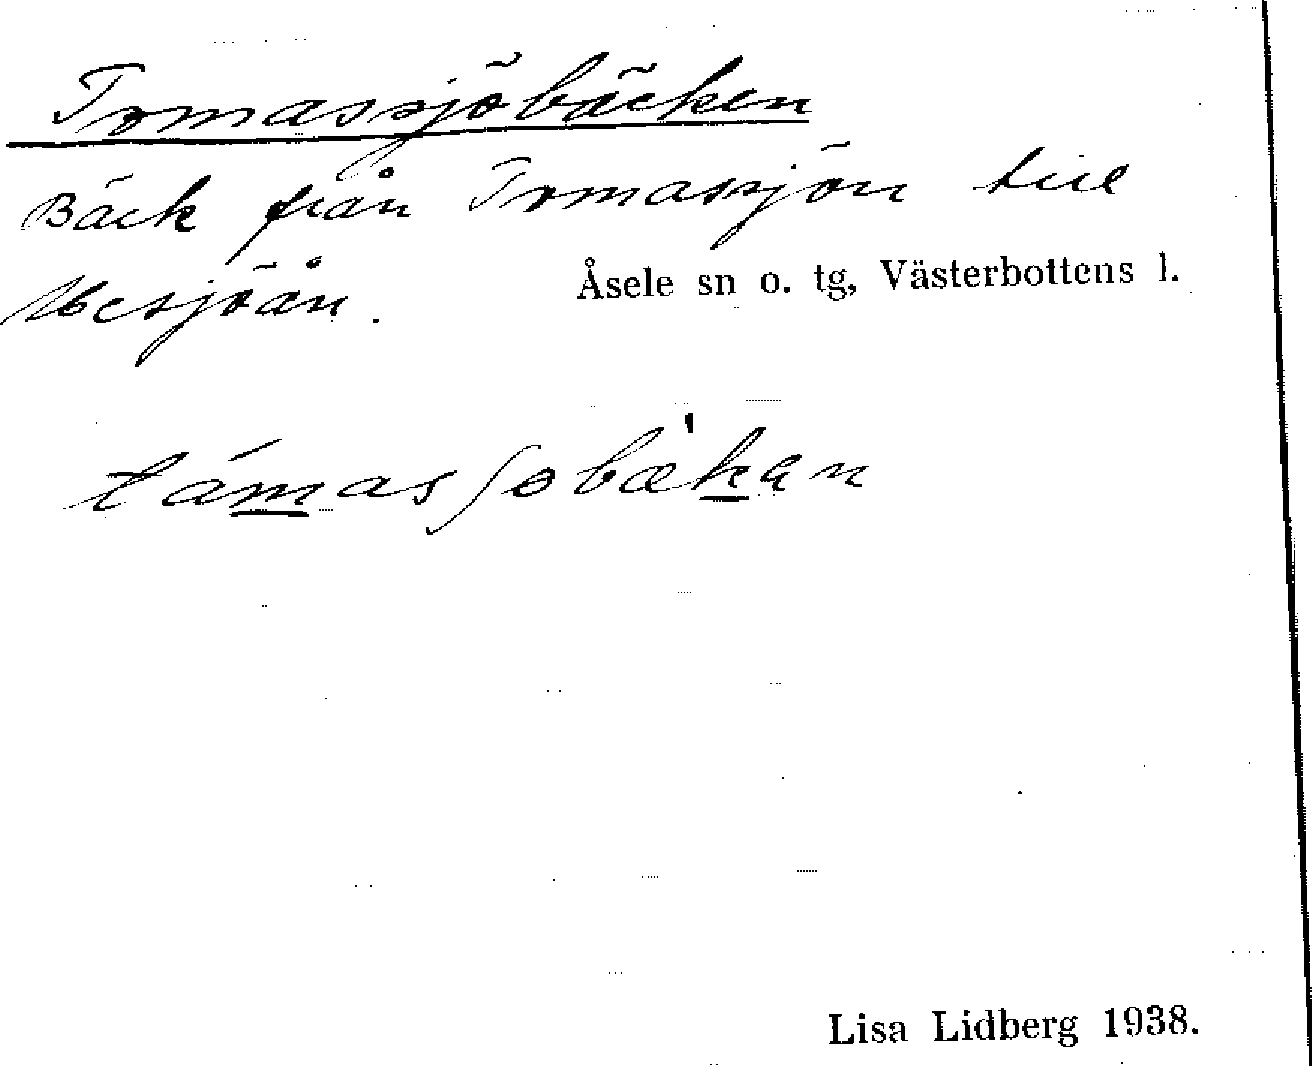 Tomassjöbäcken
Bäck från Tomassjön till
Åsele sn o. tg, Västerbottens l.
támasʃobæ'kan
Lisa Lidberg 1938.